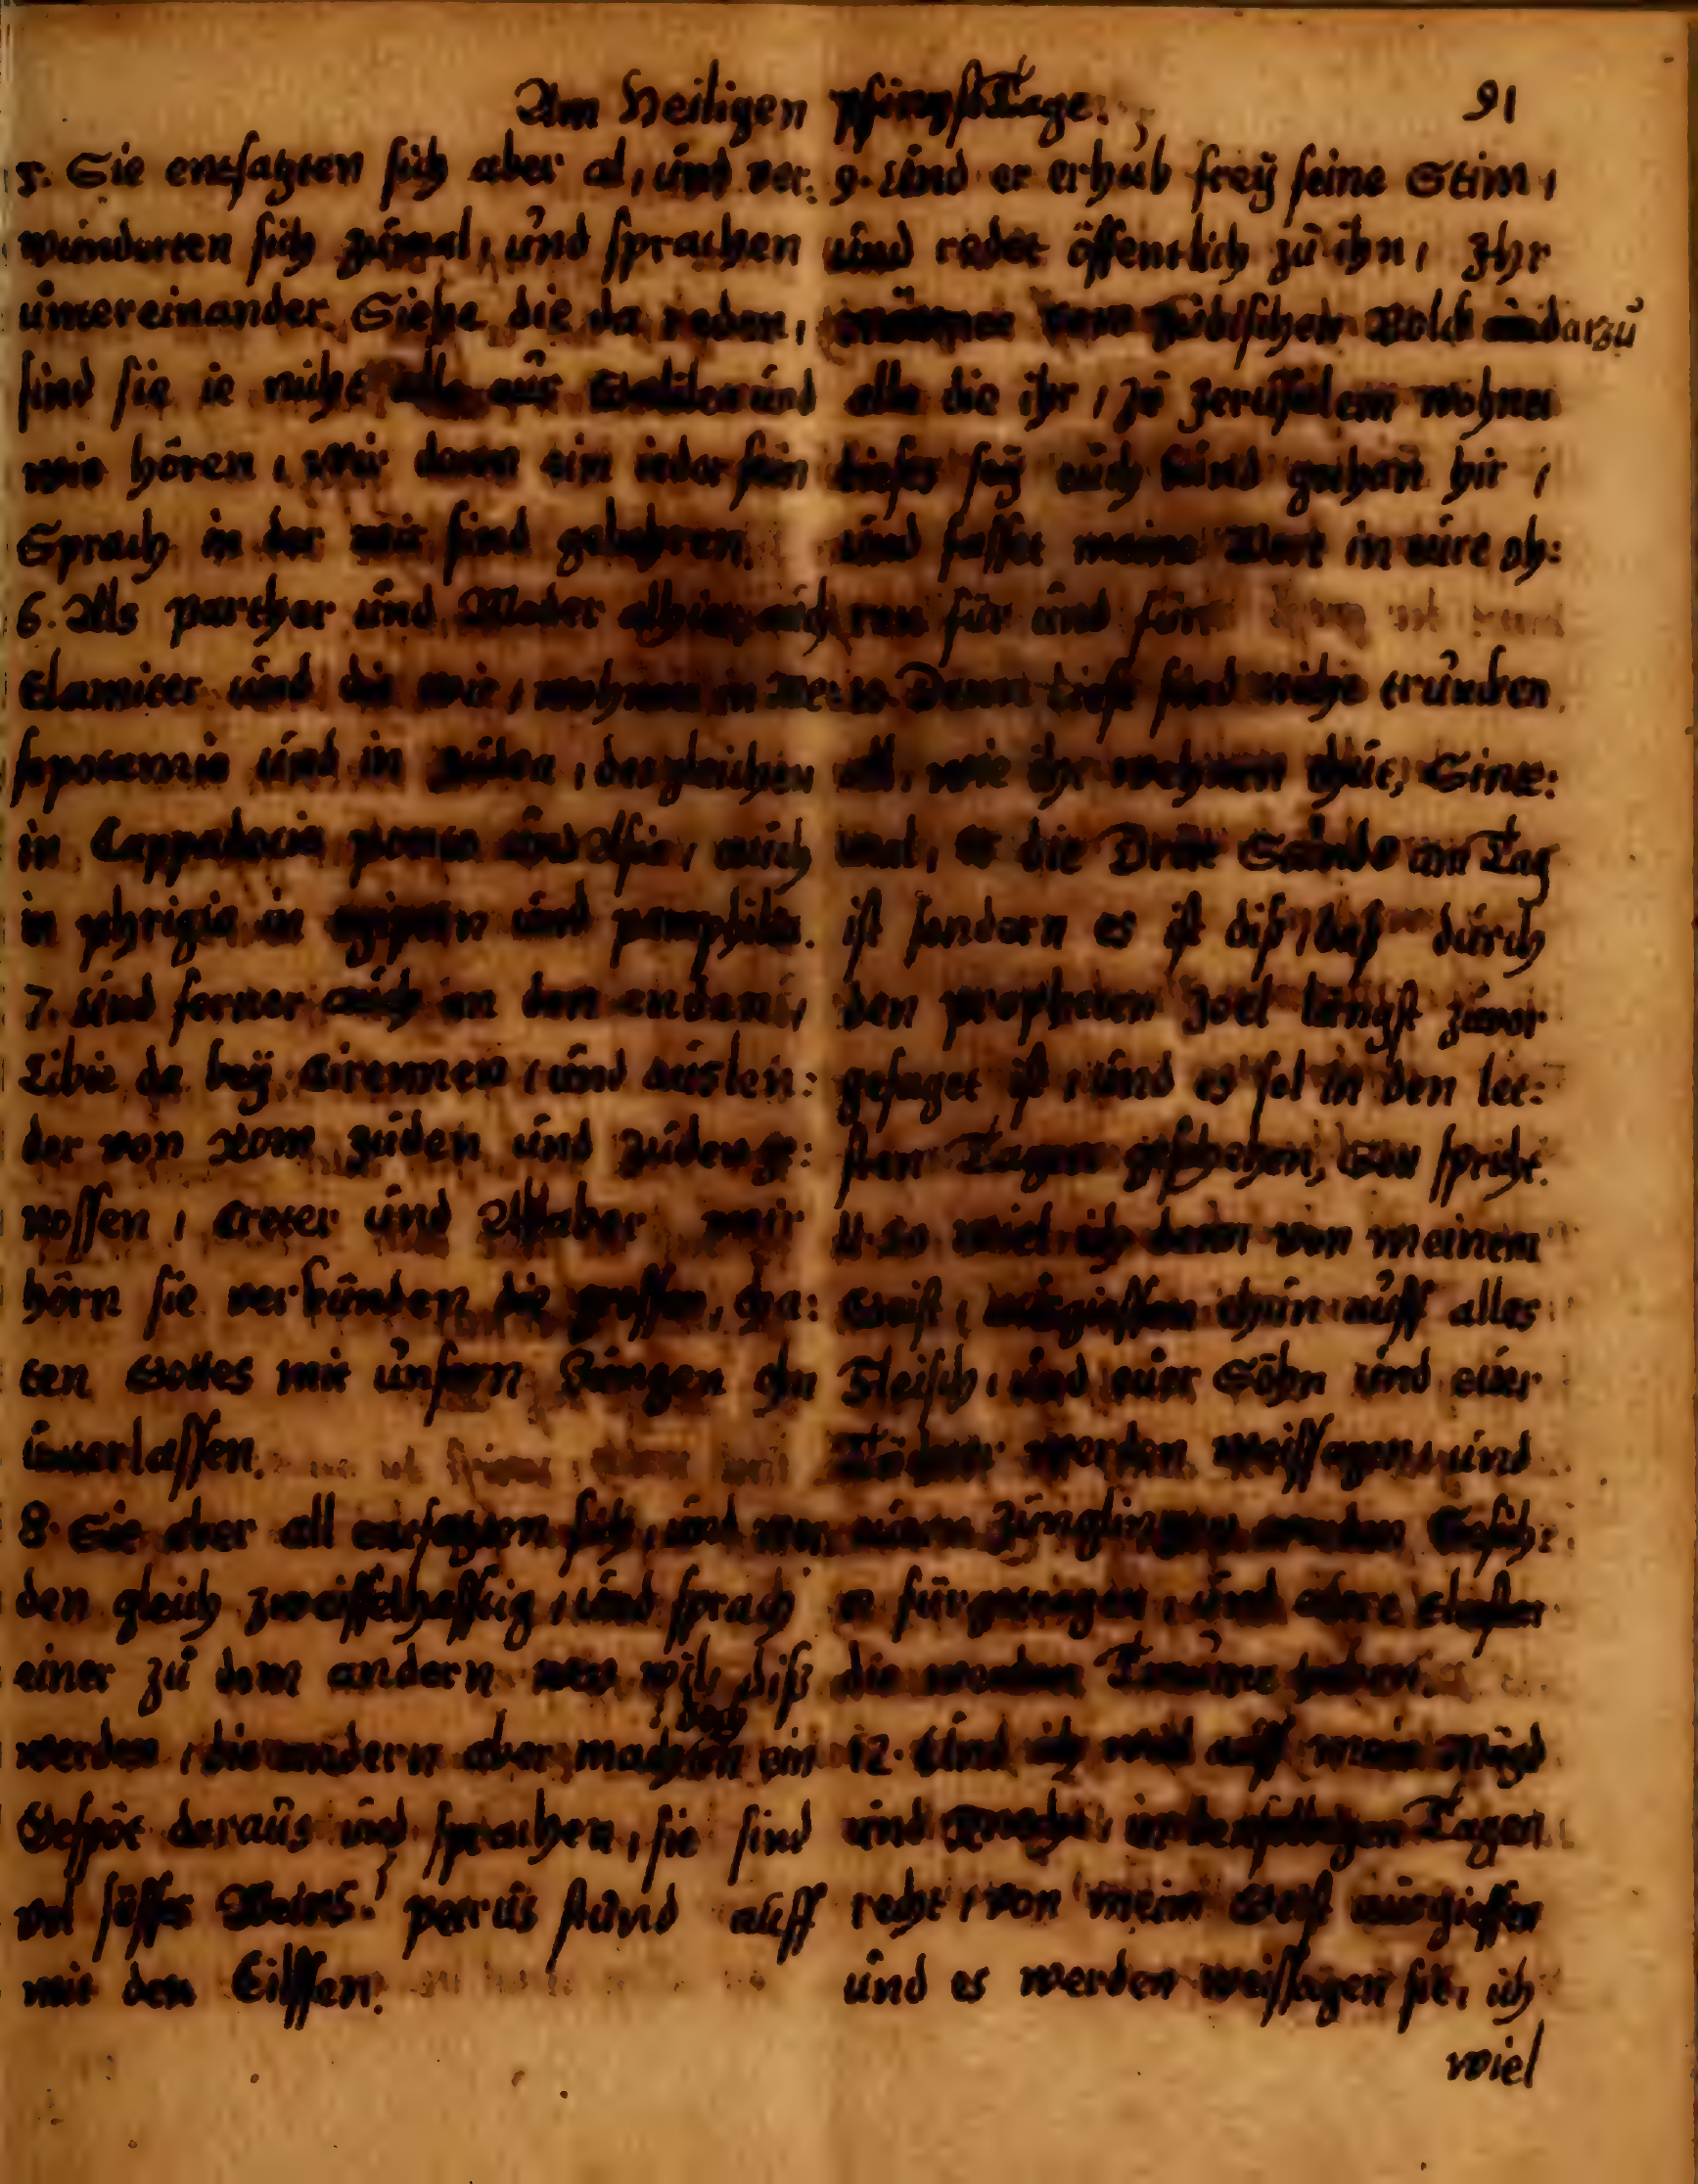 Am Heiligen pfingstTage. 91
5. Sie entsatzten sich aber al, und ver:
wundorten sich zumal, und sprachen
untereinander. Siehe die da reden,
sind sie ie nicht alle aus Galilea und
wie hören, wir dann ein ieder sein
Sprach in der wir sind gebohren.
6. Als parther und Meder auch
Elamiter und die wir, wohnen in Me:
sopotamia und in Judea, desgleichen
in Cappadocia ponto und Asia, auch
in phrigia in egipten und pamphilia.
7. und ferner auch an den enden,
Libie da beÿ Cirennen, und auslen:
der von Rom Juden und Judenge:
nossen, Creter und Araber wir
hörn sie verkünden die grossen, tha:
ten Gottes mit unsern Zungen thu
unterlassen.
8. Sie aber all entsatzten sich, und wor
den gleich zweiffelhafftig, und sprach
einer zu dem andern was wil diß
doch
werden, die andern aber machten ein
Gespöt daraus und sprachen, sie sind
vol süsses Weins. petrus stund auff
mit den Eilffen.
9. und er erhub freÿ seine Stim,
und redet öffentlich zu ihn, Ihr
männer vom Jüdischen Volck und darzu
alle die ihr, zu Jerusalem wohnet
dieses seÿ euch kund gethan hir,
und fasset meine Wort in eure oh:
ren für und für.
10. Denn diese sind nicht trunken
all, wie ihr wehnen thut, Sinte:
mal, es die Drite Stunde am Tag
ist sondern es ist diß, daß durch
den propheten Joel längst zuvor
gesaget ist, und es sol in den let:
sten Tagen geschehen, Gott spricht.
11. So wiel ich dann von meinem
Geist, ausgiessen thun auff alles
Fleisch, und euer Söhn und euer
Töchter werden weissagen, und
euern Jünglingen werden Gesich:
und eltesten
die werden Traüme haben.
12. Und ich will auff mein Mägd
und Knecht, in denselbigen Tagen
recht, von meim Geist ausgiessen
und es werden weissagen sie, ich
wiel